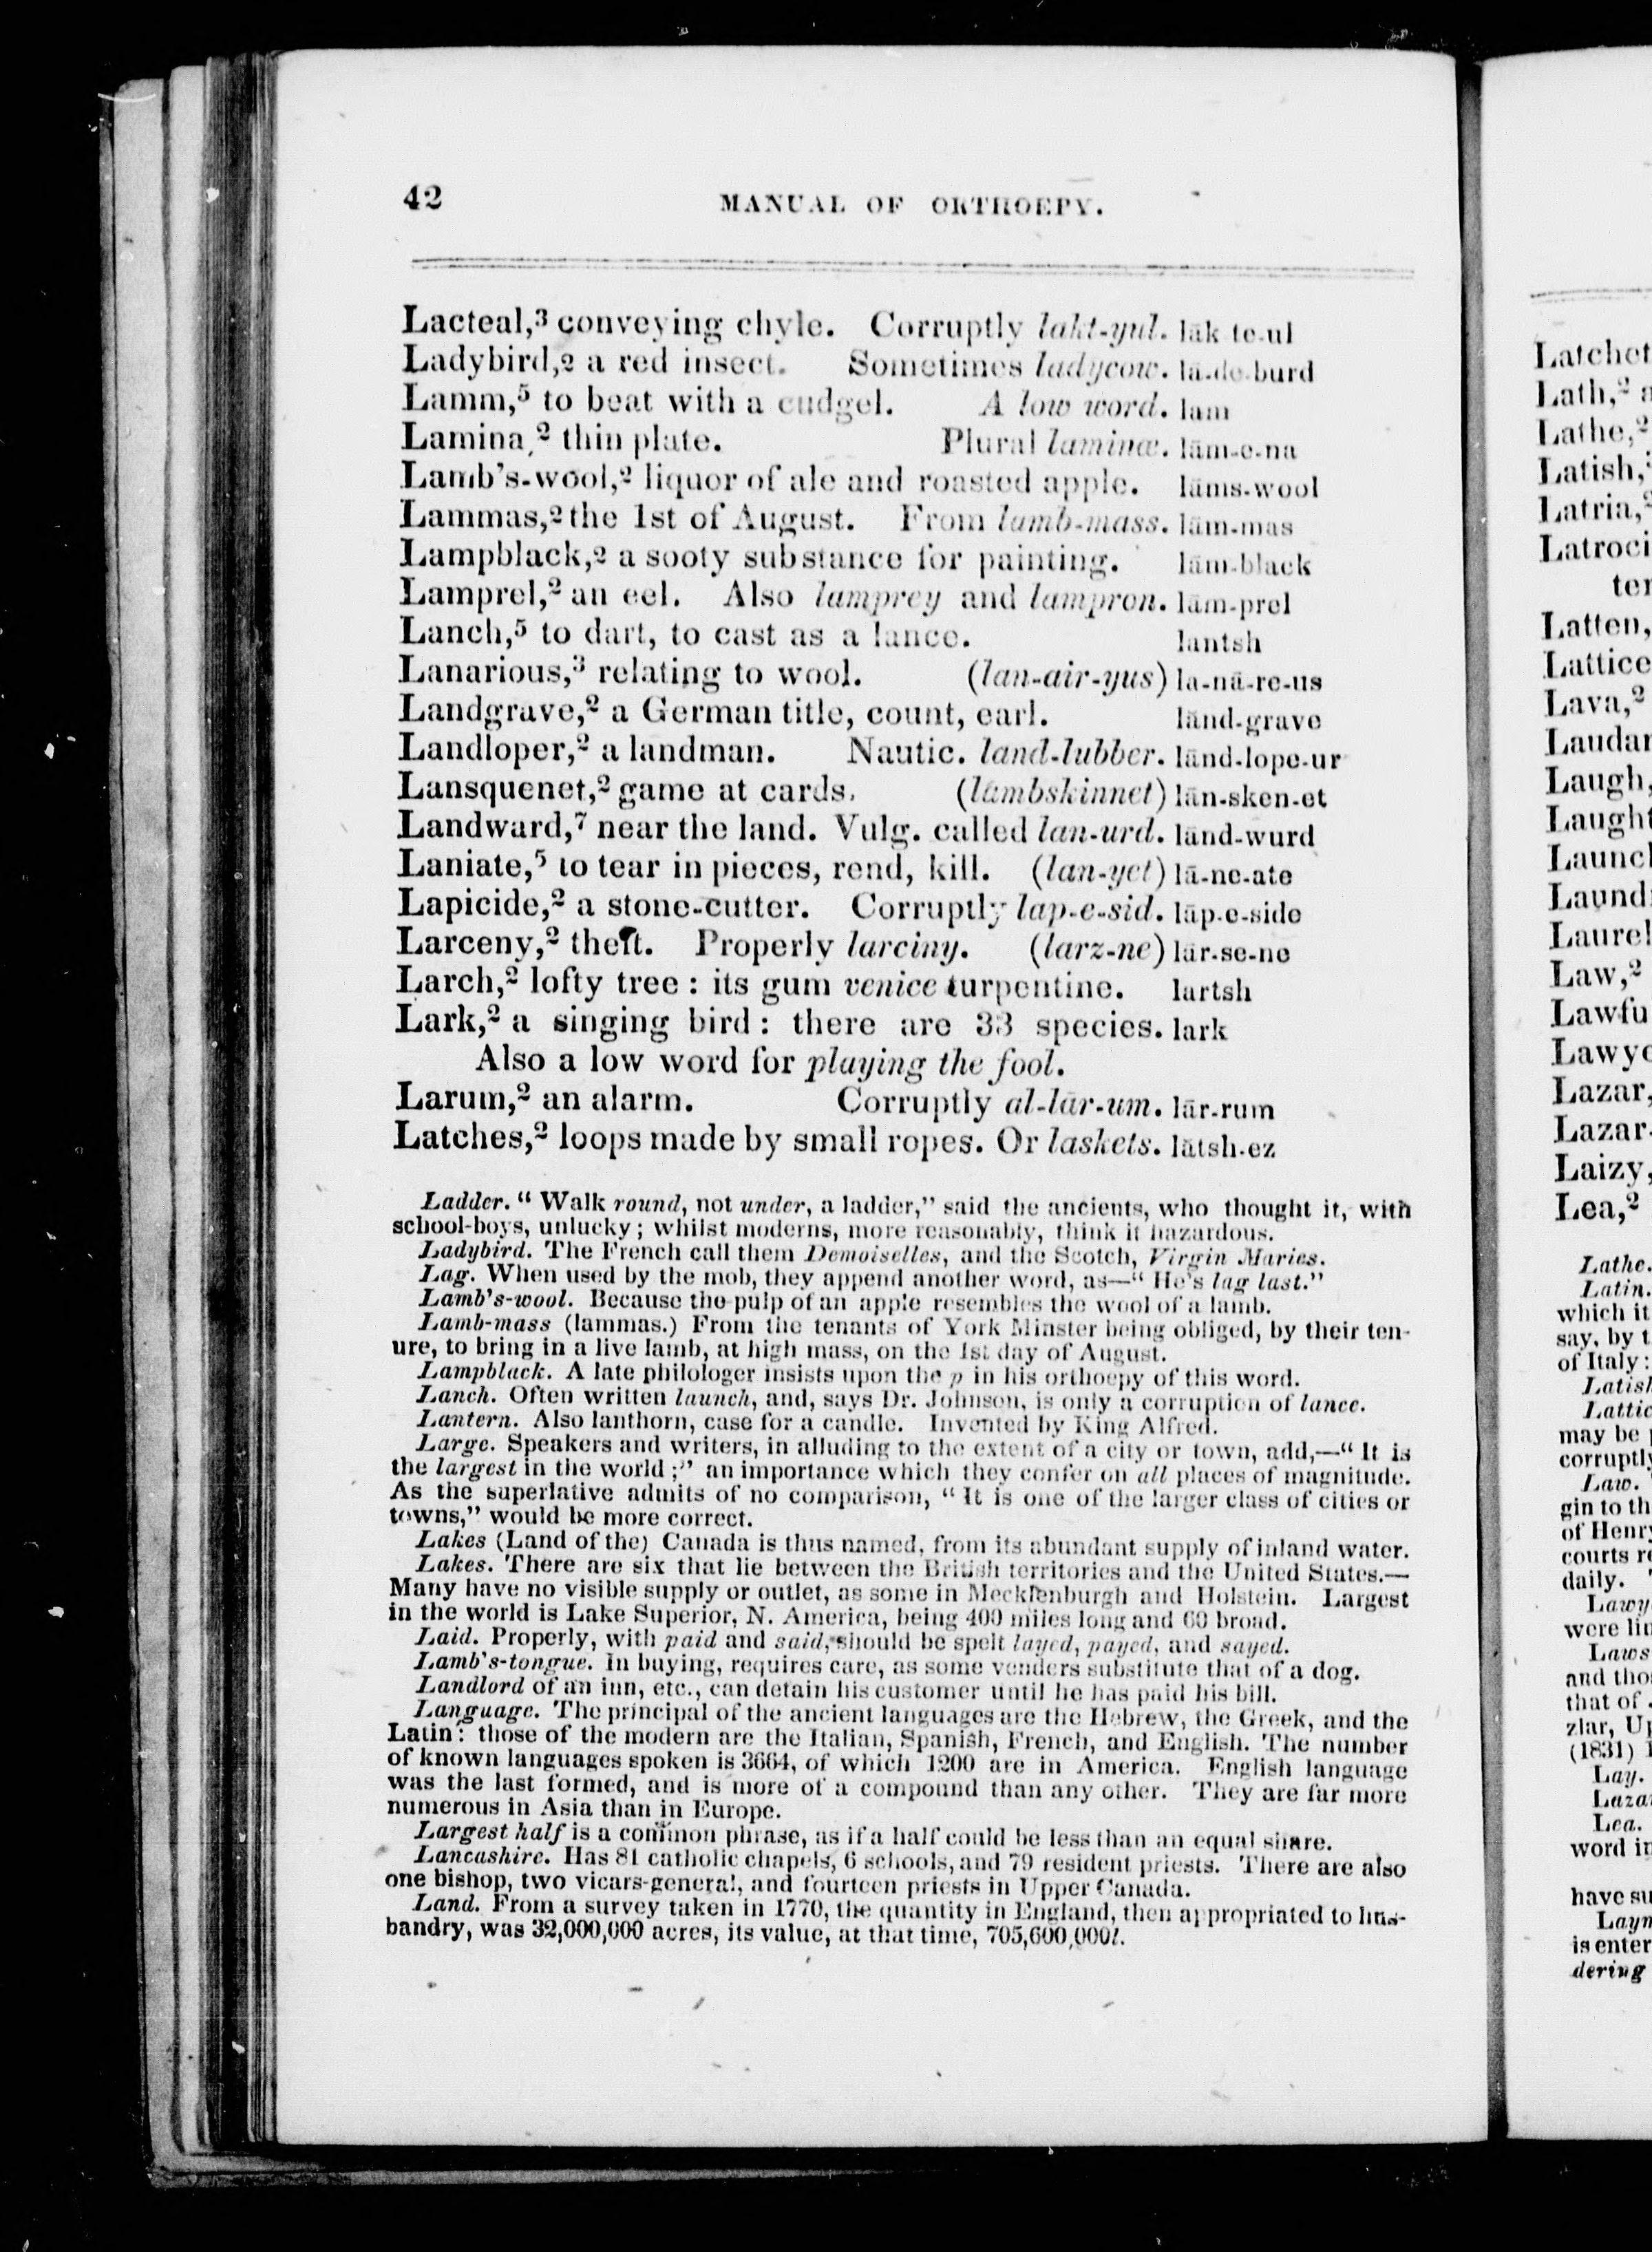 42 MANUAL OF ORTHOEPY.
Lacteal,³ conveying chyle. Corruptly lakt-yul. lāk-te-ul
Ladybird,² a red insect. Sometimes ladycow. la-de-burd
Lamm,⁵ to beat with a cudgel. A low word. lam
Lamina,² thin plate. Plural laminæ. lām-e-na
Lamb's-wool,² liquor of ale and roasted apple. lāms-wool
Lammas,² the 1st of August. From lamb-mass. lām-mas
Lampblack,² a sooty substance for painting. lām-black
Lamprel,² an eel. Also lamprey and lampron. lām-prel
Lanch,⁵ to dart, to cast as a lance. lantsh
Lanarious,³ relating to wool. (lan-air-yus) la-nā-re-us
Landgrave,² a German title, count, earl. lānd-grave
Landloper,² a landman. Nautic. land-lubber. lānd-lope-ur
Lansquenet,² game at cards. (lāmbskinnet) lān-sken-et
Landward,⁷ near the land. Vulg. called lan-urd. lānd-wurd
Laniate,⁵ to tear in pieces, rend, kill. (lan-yet) lā-ne-ate
Lapicide,² a stone-cutter. Corruptly lap-e-sid. lāp-e-side
Larceny,² theft. Properly larciny. (larz-ne) lār-se-ne
Larch,² lofty tree : its gum venice turpentine. lartsh
Lark,² a singing bird : there are 33 species. lark
Also a low word for playing the fool.
Larum,² an alarm. Corruptly al-lār-um. lār-rum
Latches,² loops made by small ropes. Or laskets. lātsh-ez
Ladder. "Walk round, not under, a ladder," said the ancients, who thought it, with
school-boys, unlucky ; whilst moderns, more reasonably, think it hazardous.
Ladybird. The French call them Demoiselles, and the Scotch, Virgin Maries.
Lag. When used by the mob, they append another word, as—"He's lag last."
Lamb's-wool. Because the pulp of an apple resembles the wool of a lamb.
Lamb-mass (lammas.) From the tenants of York Minster being obliged, by their ten-
ure, to bring in a live lamb, at high mass, on the 1st day of August.
Lampblack. A late philologer insists upon the p in his orthoepy of this word.
Lanch. Often written launch, and, says Dr. Johnson, is only a corruption of lance.
Lantern. Also lanthorn, case for a candle. Invented by King Alfred.
Large. Speakers and writers, in alluding to the extent of a city or town, add,—"It is
the largest in the world ;" an importance which they confer on all places of magnitude.
As the superlative admits of no comparison, "It is one of the larger class of cities or
towns," would be more correct.
Lakes (Land of the) Canada is thus named, from its abundant supply of inland water.
Lakes. There are six that lie between the British territories and the United States.—
Many have no visible supply or outlet, as some in Mecklenburgh and Holstein. Largest
in the world is Lake Superior, N. America, being 400 miles long and 60 broad.
Laid. Properly, with paid and said, should be spelt layed, payed, and sayed.
Lamb's-tongue. In buying, requires care, as some venders substitute that of a dog.
Landlord of an inn, etc., can detain his customer until he has paid his bill.
Language. The principal of the ancient languages are the Hebrew, the Greek, and the
Latin : those of the modern are the Italian, Spanish, French, and English. The number
of known languages spoken is 3664, of which 1200 are in America. English language
was the last formed, and is more of a compound than any other. They are far more
numerous in Asia than in Europe.
Largest half is a common phrase, as if a half could be less than an equal share.
Lancashire. Has 81 catholic chapels, 6 schools, and 79 resident priests. There are also
one bishop, two vicars-general, and fourteen priests in Upper Canada.
Land. From a survey taken in 1770, the quantity in England, then appropriated to hus-
bandry, was 32,000,000 acres, its value, at that time, 705,600,000l.
Latchet
Lath,² a
Lathe,²
Latish,
Latria,²
Latroci
ter
Latten,
Lattice
Lava,²
Laudan
Laugh,
Laught
Launch
Laund
Laurel
Law,²
Lawfu
Lawye
Lazar,
Lazar-
Laizy,
Lea,²
Lathe.
Latin.
which it
say, by t
of Italy :
Latish
Lattic
may be
corruptly
Law.
gin to th
of Henry
courts re
daily.
Lawy
were lin
Laws
and tho
that of
zlar, Up
(1831)
Lay.
Laza
Lea.
word in
have su
Laym
is enter
dering